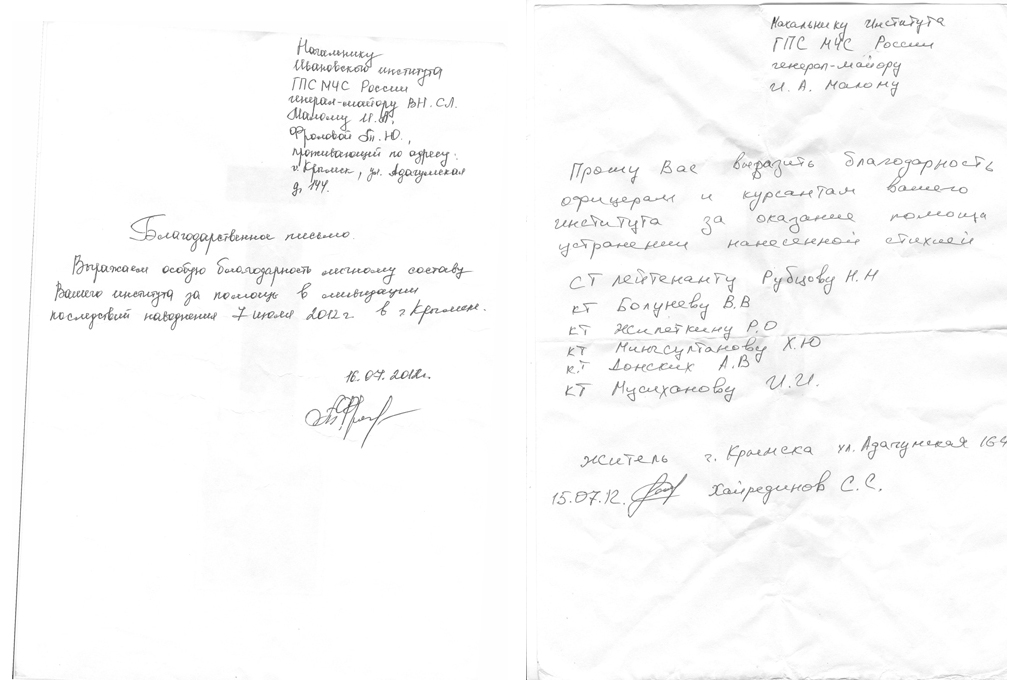 Начальнику
Ивановского института
ГПС МЧС России
генерал-майору ВН. СЛ.
Малому И.А.
Фроловой Т.Ю.,
проживающей по адресу:
г. Крымск, ул. Адагумская
д. 144.
Благодарственное письмо.
Выражаем особую благодарность личному составу
Вашего института за помощь в ликвидации
последствий наводнения 7 июля 2012 г. в г. Крымске.
16.07.2012г.
Начальнику Института
ГПС МЧС России
генерал-майору
И. А. Малому
Прошу Вас выразить благодарность
офицерам и курсантам вашего
института за оказание помощи
устранении нанесенной стихией
СТ лейтенанту Рубцову Н.Н
КТ Болуневу В.В
КТ Жилеткину Р.О
КТ Мингсултанову Х.Ю
к.т Донских А.В
КТ Мусиханову И.И.
Житель г. Крымска ул. Адагумская 164
15.07.12. Хайрединов С.С.